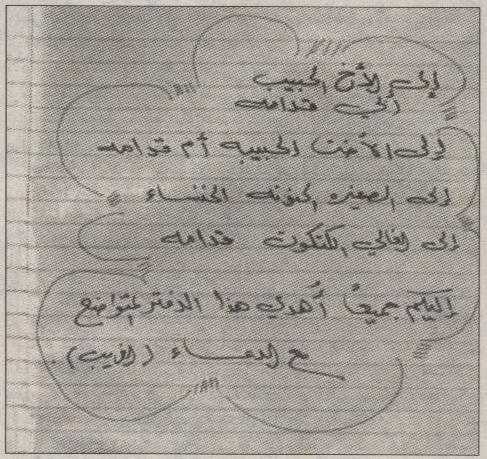 إلى الأخ الحبيب
أبي قدامه
إلى الأخت الحبيبه أم قدامه
إلى الصغيره الحنونه الخنساء
إلى الغالي الكتكوت قدامه
إليكم جميعاً أُهدي هذا الدفتر المتواضع
مع الدعاء (الغريب).